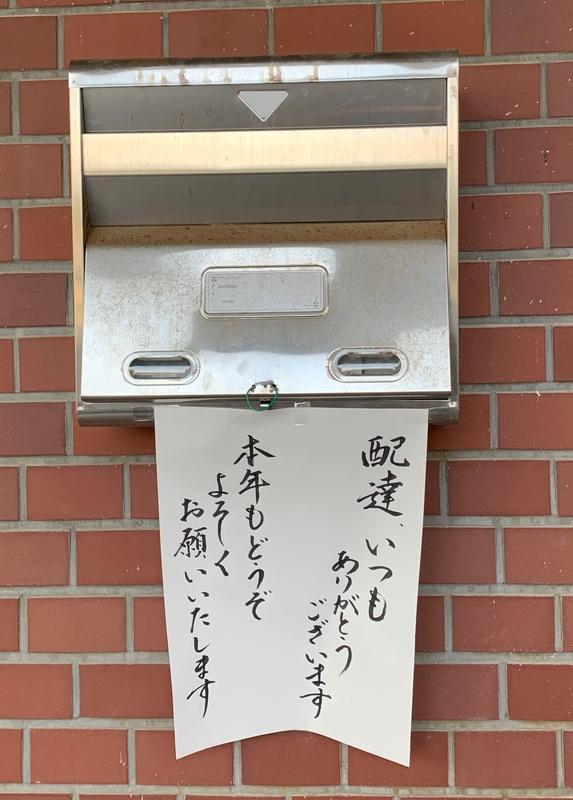 配達、いつも
ありがとう
ございます
本年もどうぞ
よろしく
お願いいたします